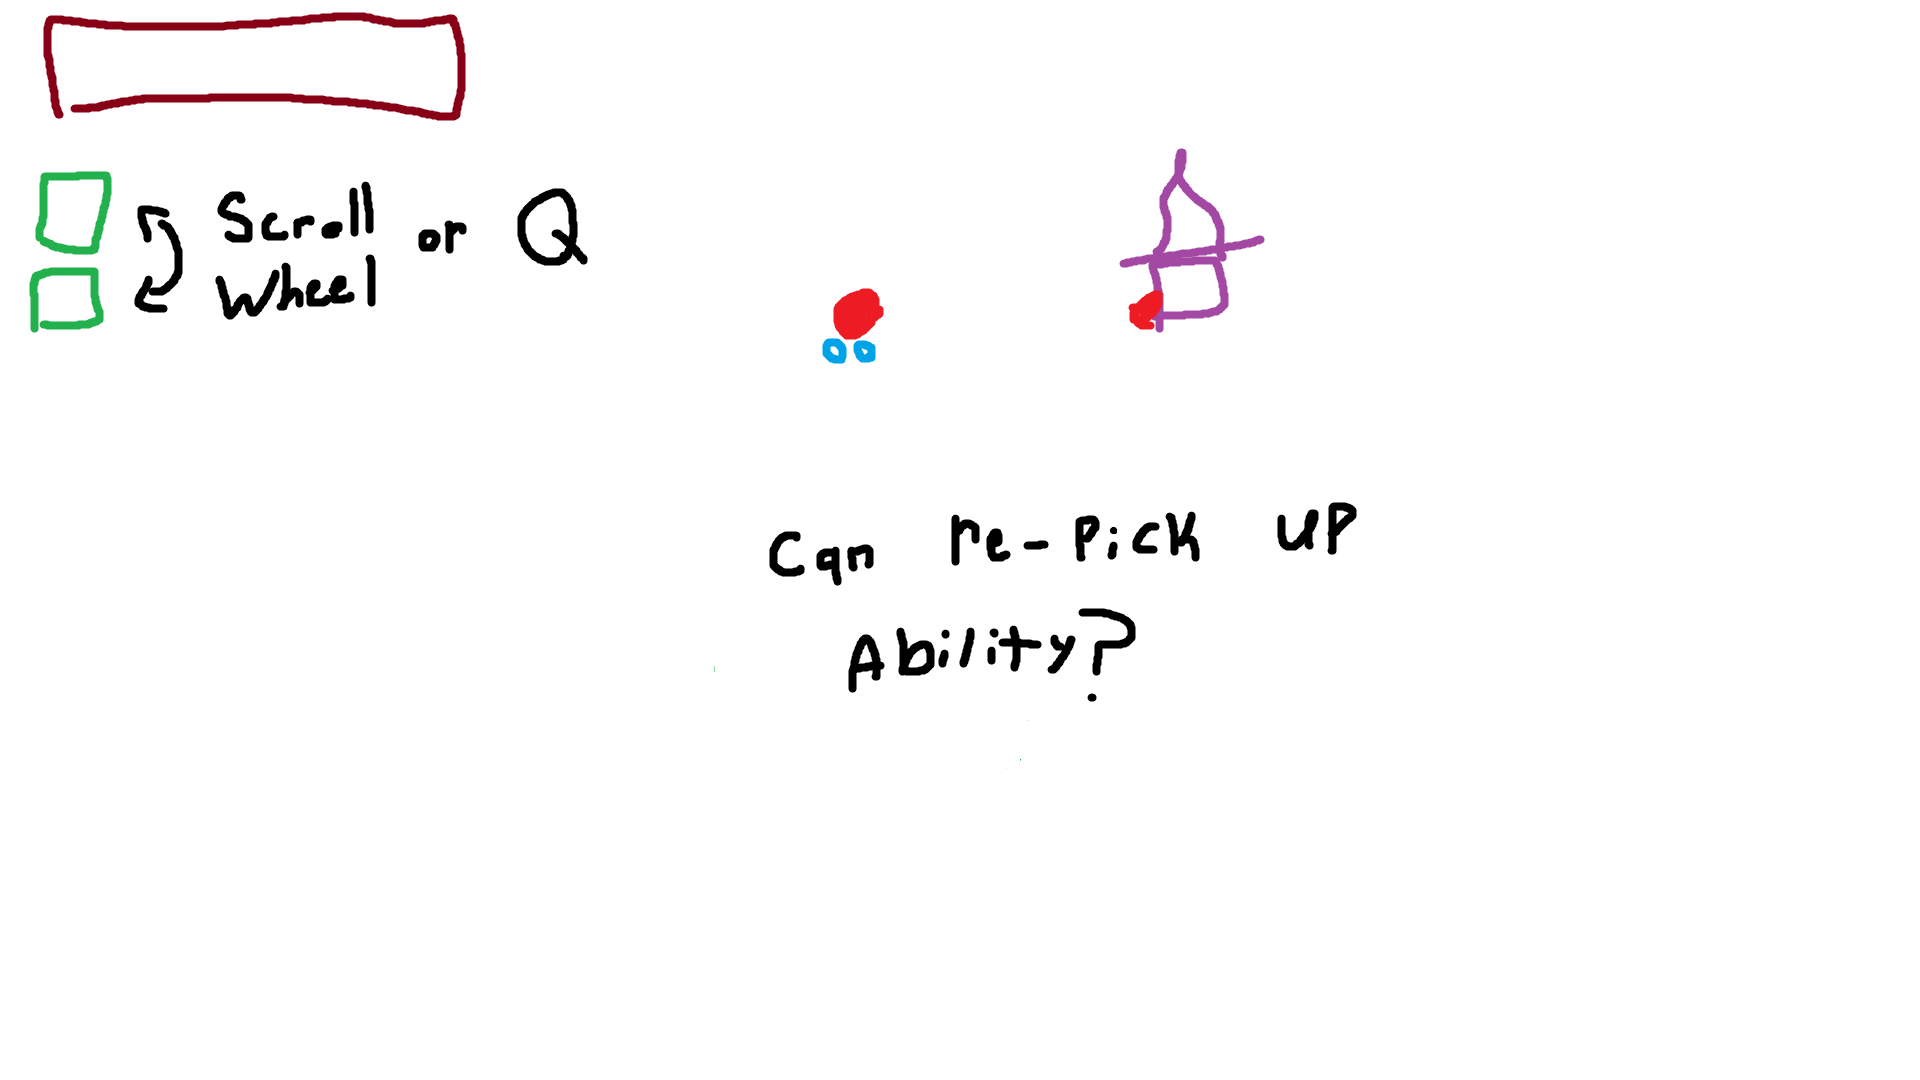 Scroll or Q
Wheel
Can re-Pick UP
Ability?